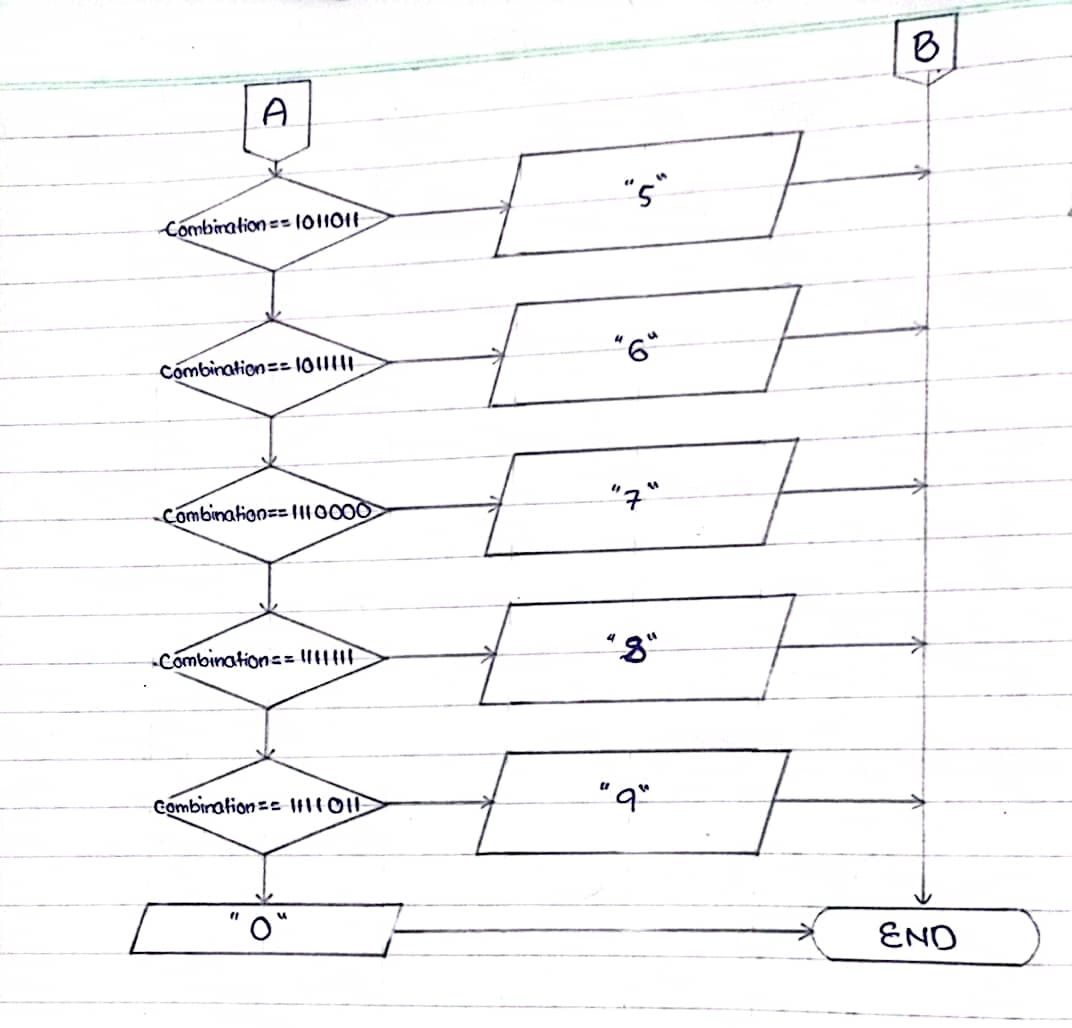 B
A
Combination == 1011011
"5"
Combination == 1011111
"6"
Combination == 1110000
"7"
Combination == 1111111
"8"
Combination == 1111011
"9"
"0"
END